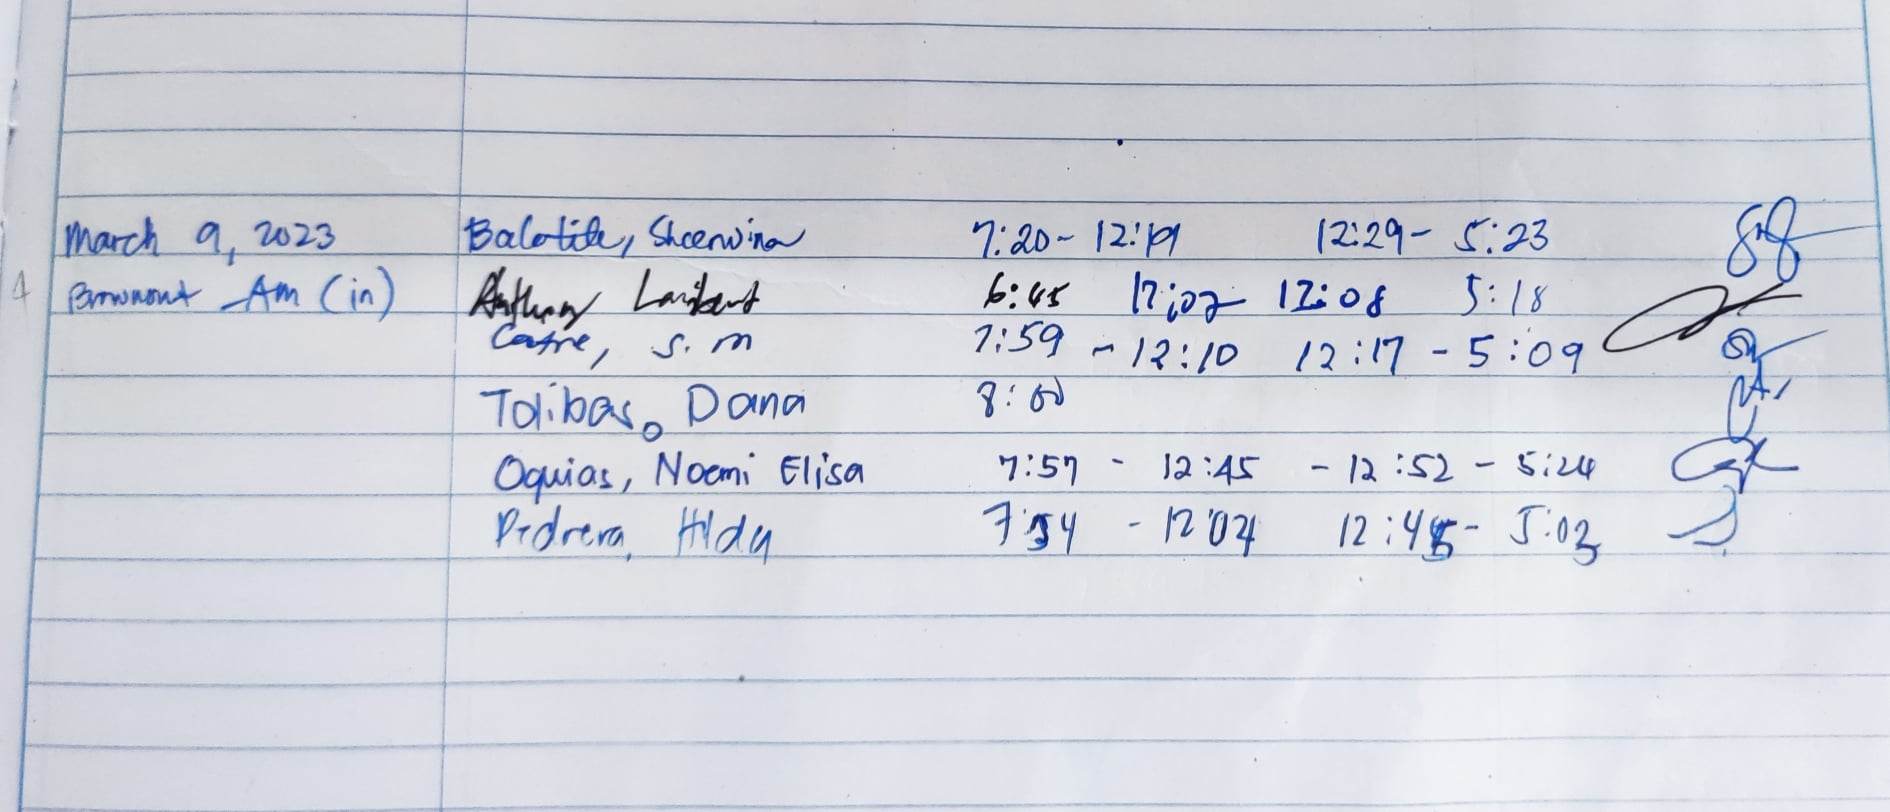 March 9, 2023 Balotite, Sheerwina 7:20 - 12:19 12:29 - 5:23
Brownout - Am (in) Anthony Lambert 6:45 12:02 12:08 5:18
Catre, S. m 7:59 - 12:10 12:17 - 5:09
Tolibas, Dana 8:00
Oquias, Noemi Elisa 7:57 - 12:45 - 12:52 - 5:24
Pedrera, Hilda 7:54 - 12:04 12:45 - 5:03